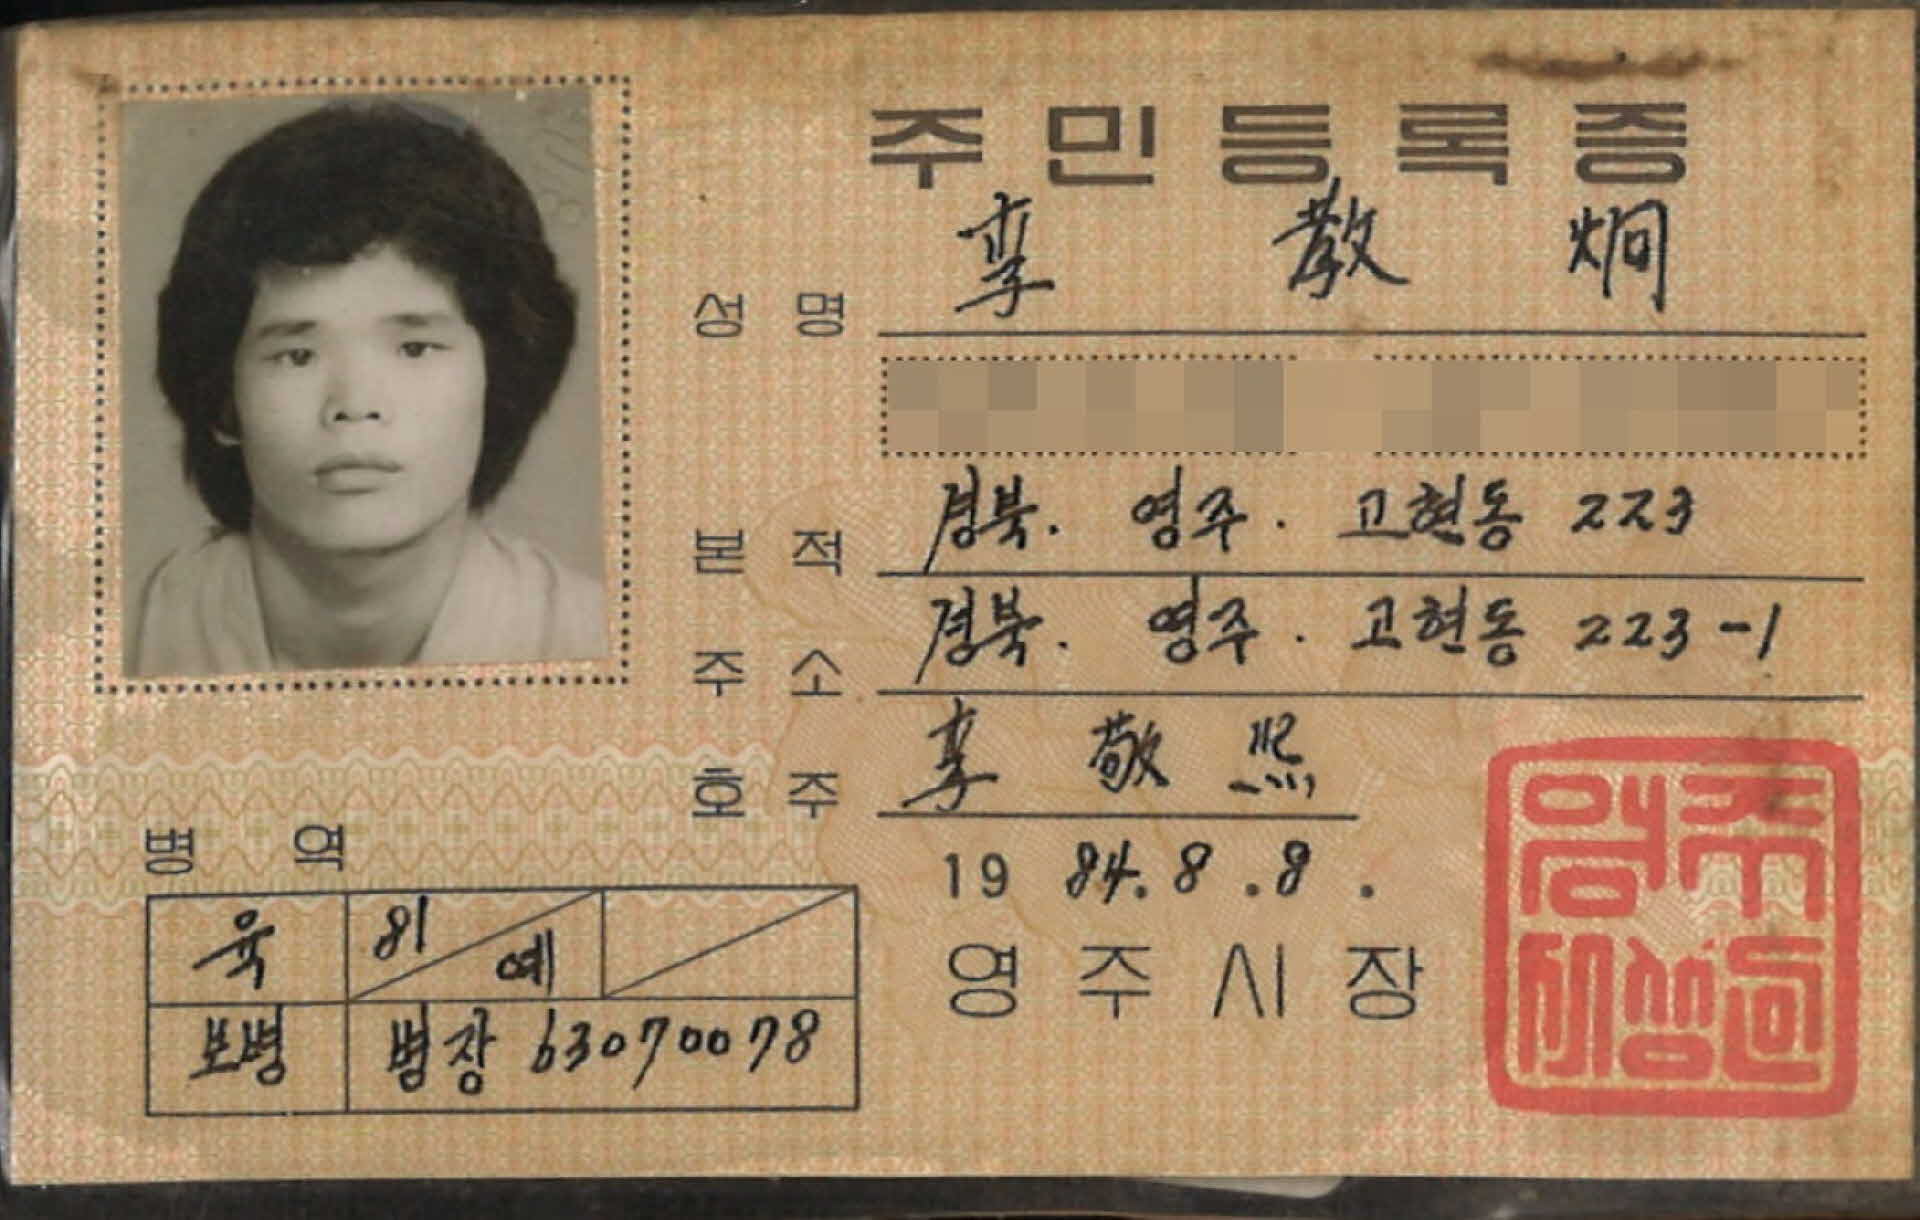 주민등록증
성명 李敎炯
본적 경북. 영주. 고현동 223
주소 경북. 영주. 고현동 223-1
호주 李敬熙
병역
육 81 예
보병 병장 63070078
1984.8.8.
영주시장